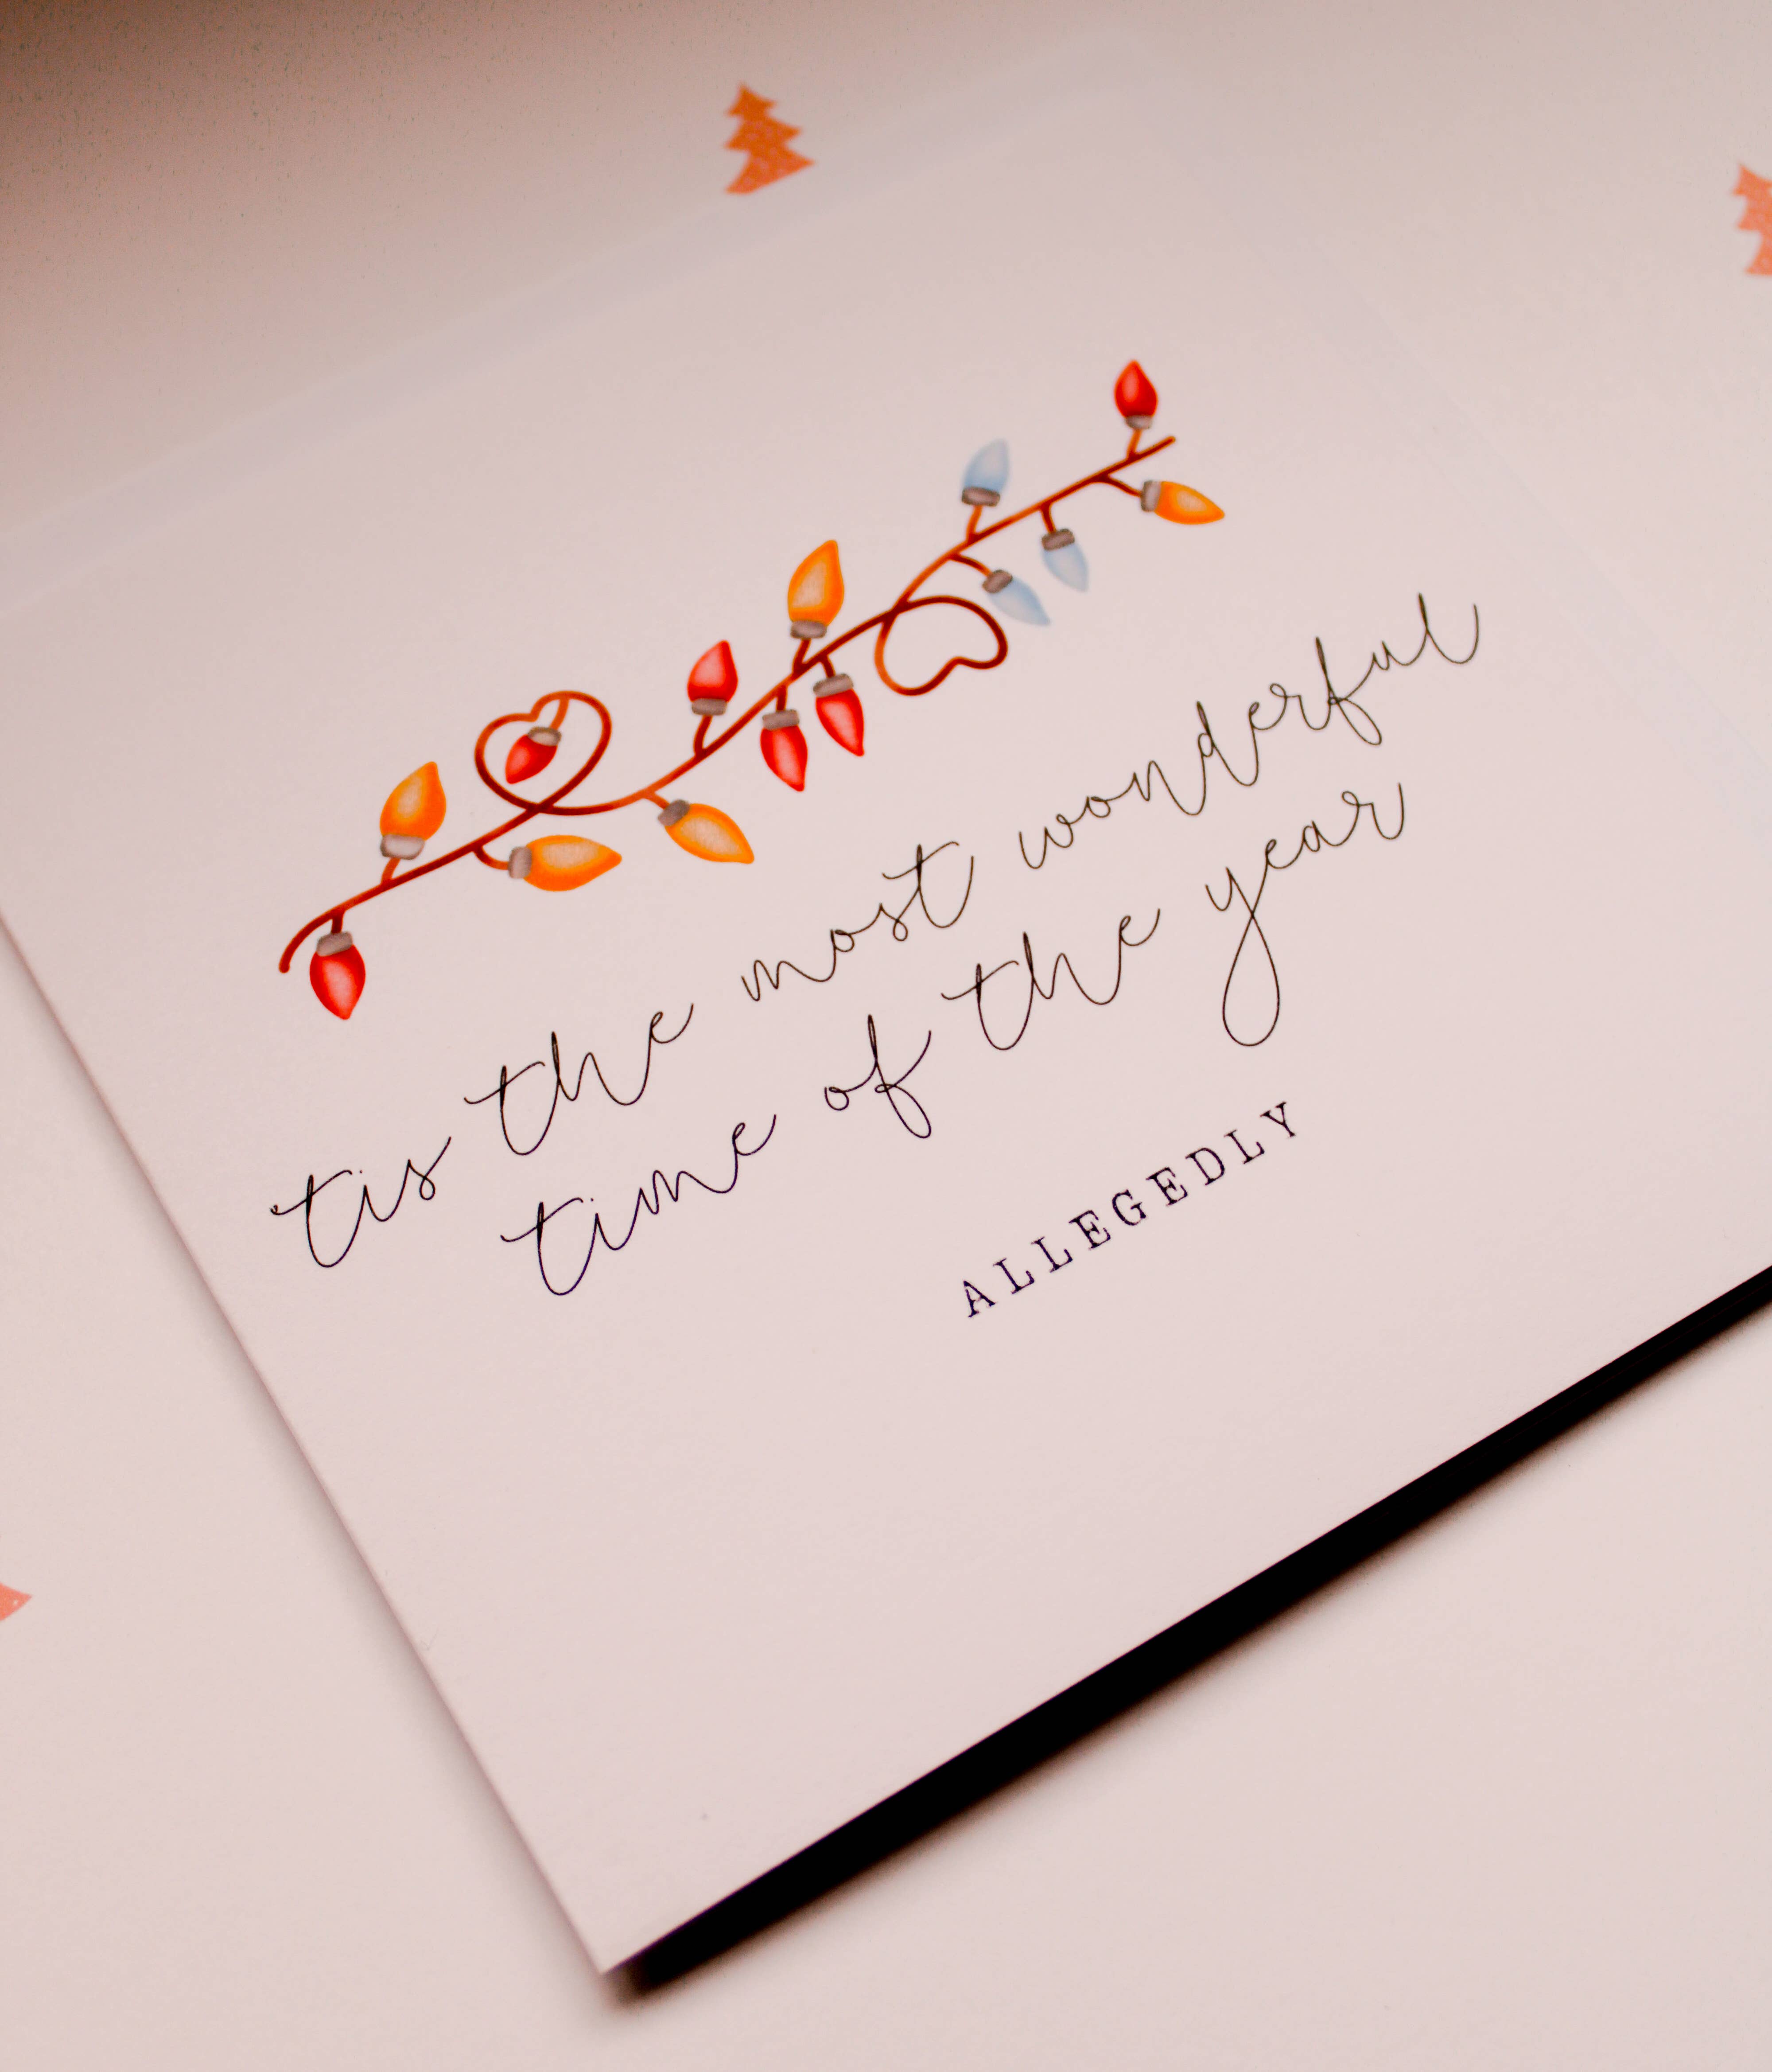 tis the most wonderful
time of the year
ALLEGEDLY